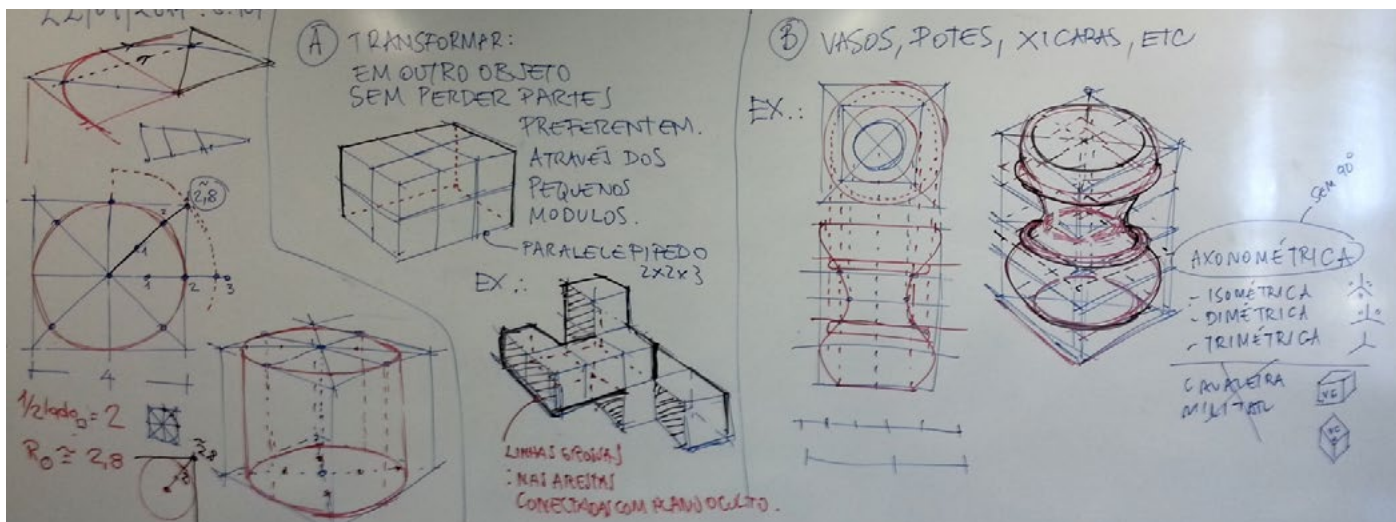 22/01/2019
2,8
1
2
1
2
3
4
1/2 lado = 2
R₀ ≅ 2,8
2,8
A TRANSFORMAR:
EM OUTRO OBJETO
SEM PERDER PARTES
PREFERENTEM.
ATRAVÉS DOS
PEQUENOS
MODULOS.
PARALELEPIPEDO
2x2x3
EX.:
LINHAS GROSSAS
: NAS ARESTAS
CONECTADAS COM PLANO OCULTO.
B VASOS, POTES, XICARAS, ETC
EX.:
SEM 90°
AXONOMÉTRICA
- ISOMÉTRICA
- DIMÉTRICA
- TRIMÉTRICA
CAVALEIRA
MILITAR
VG